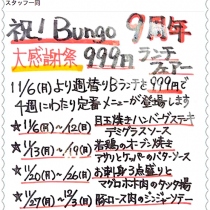 スタッフ一同
祝！Bungo 9周年
大感謝祭 999円 ランチフェアー
11/6(月)より週替りBランチを999円で
4週にわたり定番メニューが登場します
★11/6(月)〜12(日) 目玉焼きハンバーグステーキ
デミグラスソース
★11/13(月)〜19(日) 若鶏のオーブン焼き
アサリとケッパーのバターソース
★11/20(月)〜26(日) お刺身3点盛りと
マグロホホ肉のタンタ揚
★11/27(月)〜12/3(日) 豚ロース肉のジンジャーソテー